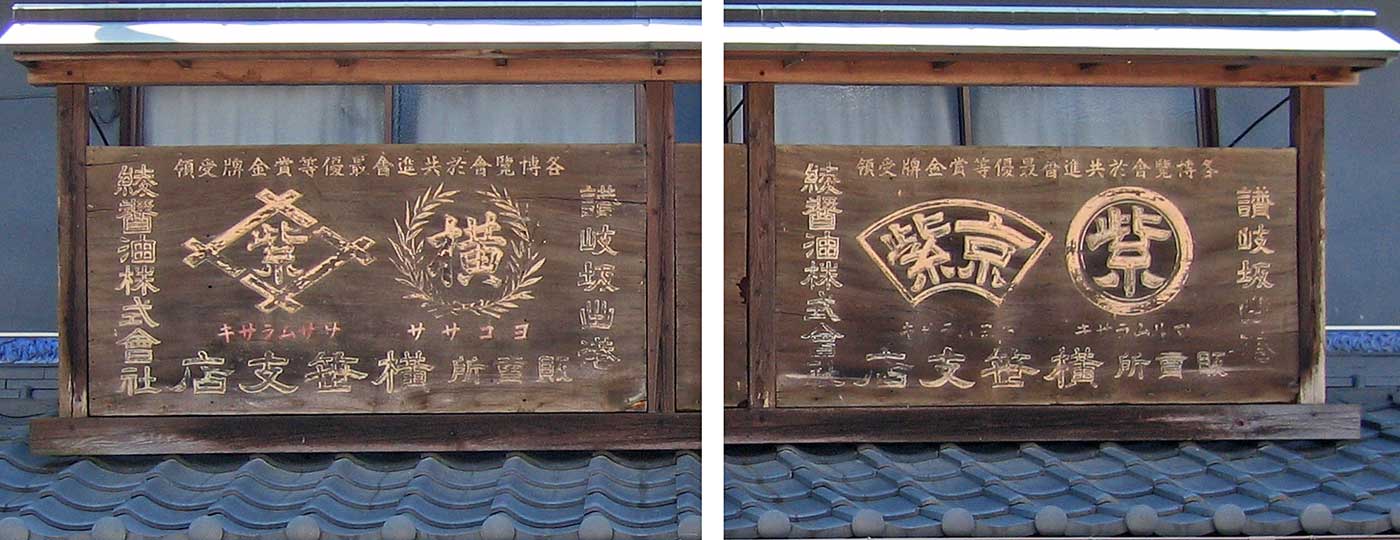 各博覽會於共進會最優等賞金牌受領
讃岐坂出港
横
ヨコササ
紫
ササムラサキ
販賣所 横笹支店
綾醤油株式會社
各博覽會於共進會最優等賞金牌受領
讃岐坂出港
紫
マルムラサキ
京紫
販賣所 横笹支店
綾醤油株式會社